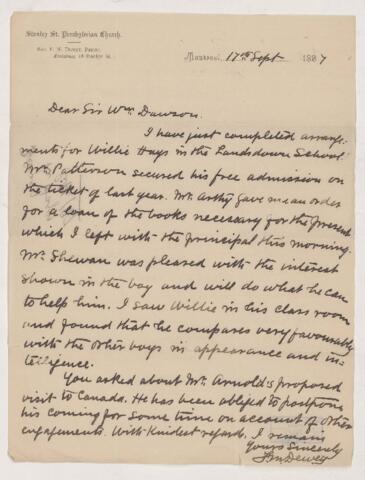 Stanley St. Presbyterian Church.
Rev. F. M. Dewey, Pastor.
Residence, 18 Stanley St.
Montreal, 17th Sept 1887
Dear Sir Wm Dawson.
I have just completed arrange-
ments for Willie Hays in the Landsdown School
Mr. Patterson secured his free admission on
the ticket of last year. Mr. Arthy gave me an order
for a loan of the books necessary for the present
which I left with the principal this morning.
Mr. Shewan was pleased with the interest
shown in the boy and will do what he can
to help him. I saw Willie in his class room
and found that he compares very favourably
with the other boys in appearance and in-
telligence.
You asked about Mr. Arnold's proposed
visit to Canada. He has been obliged to postpone
his coming for some time on account of other
engagements. With Kindest regards. I remain
Yours Sincerely
F.M. Dewey